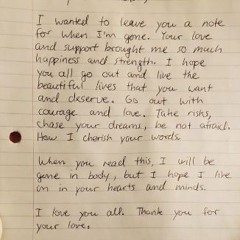 I wanted to leave you a note
for when I'm gone. Your love
and support brought me so much
happiness and strength. I hope
you all go out and live the
beautiful lives that you want
and deserve. Go out with
courage and love. Take risks,
chase your dreams, be not afraid.
How I cherish your words.
When you read this, I will be
gone in body, but I hope I live
on in your hearts and minds.
I love you all. Thank you for
your love.